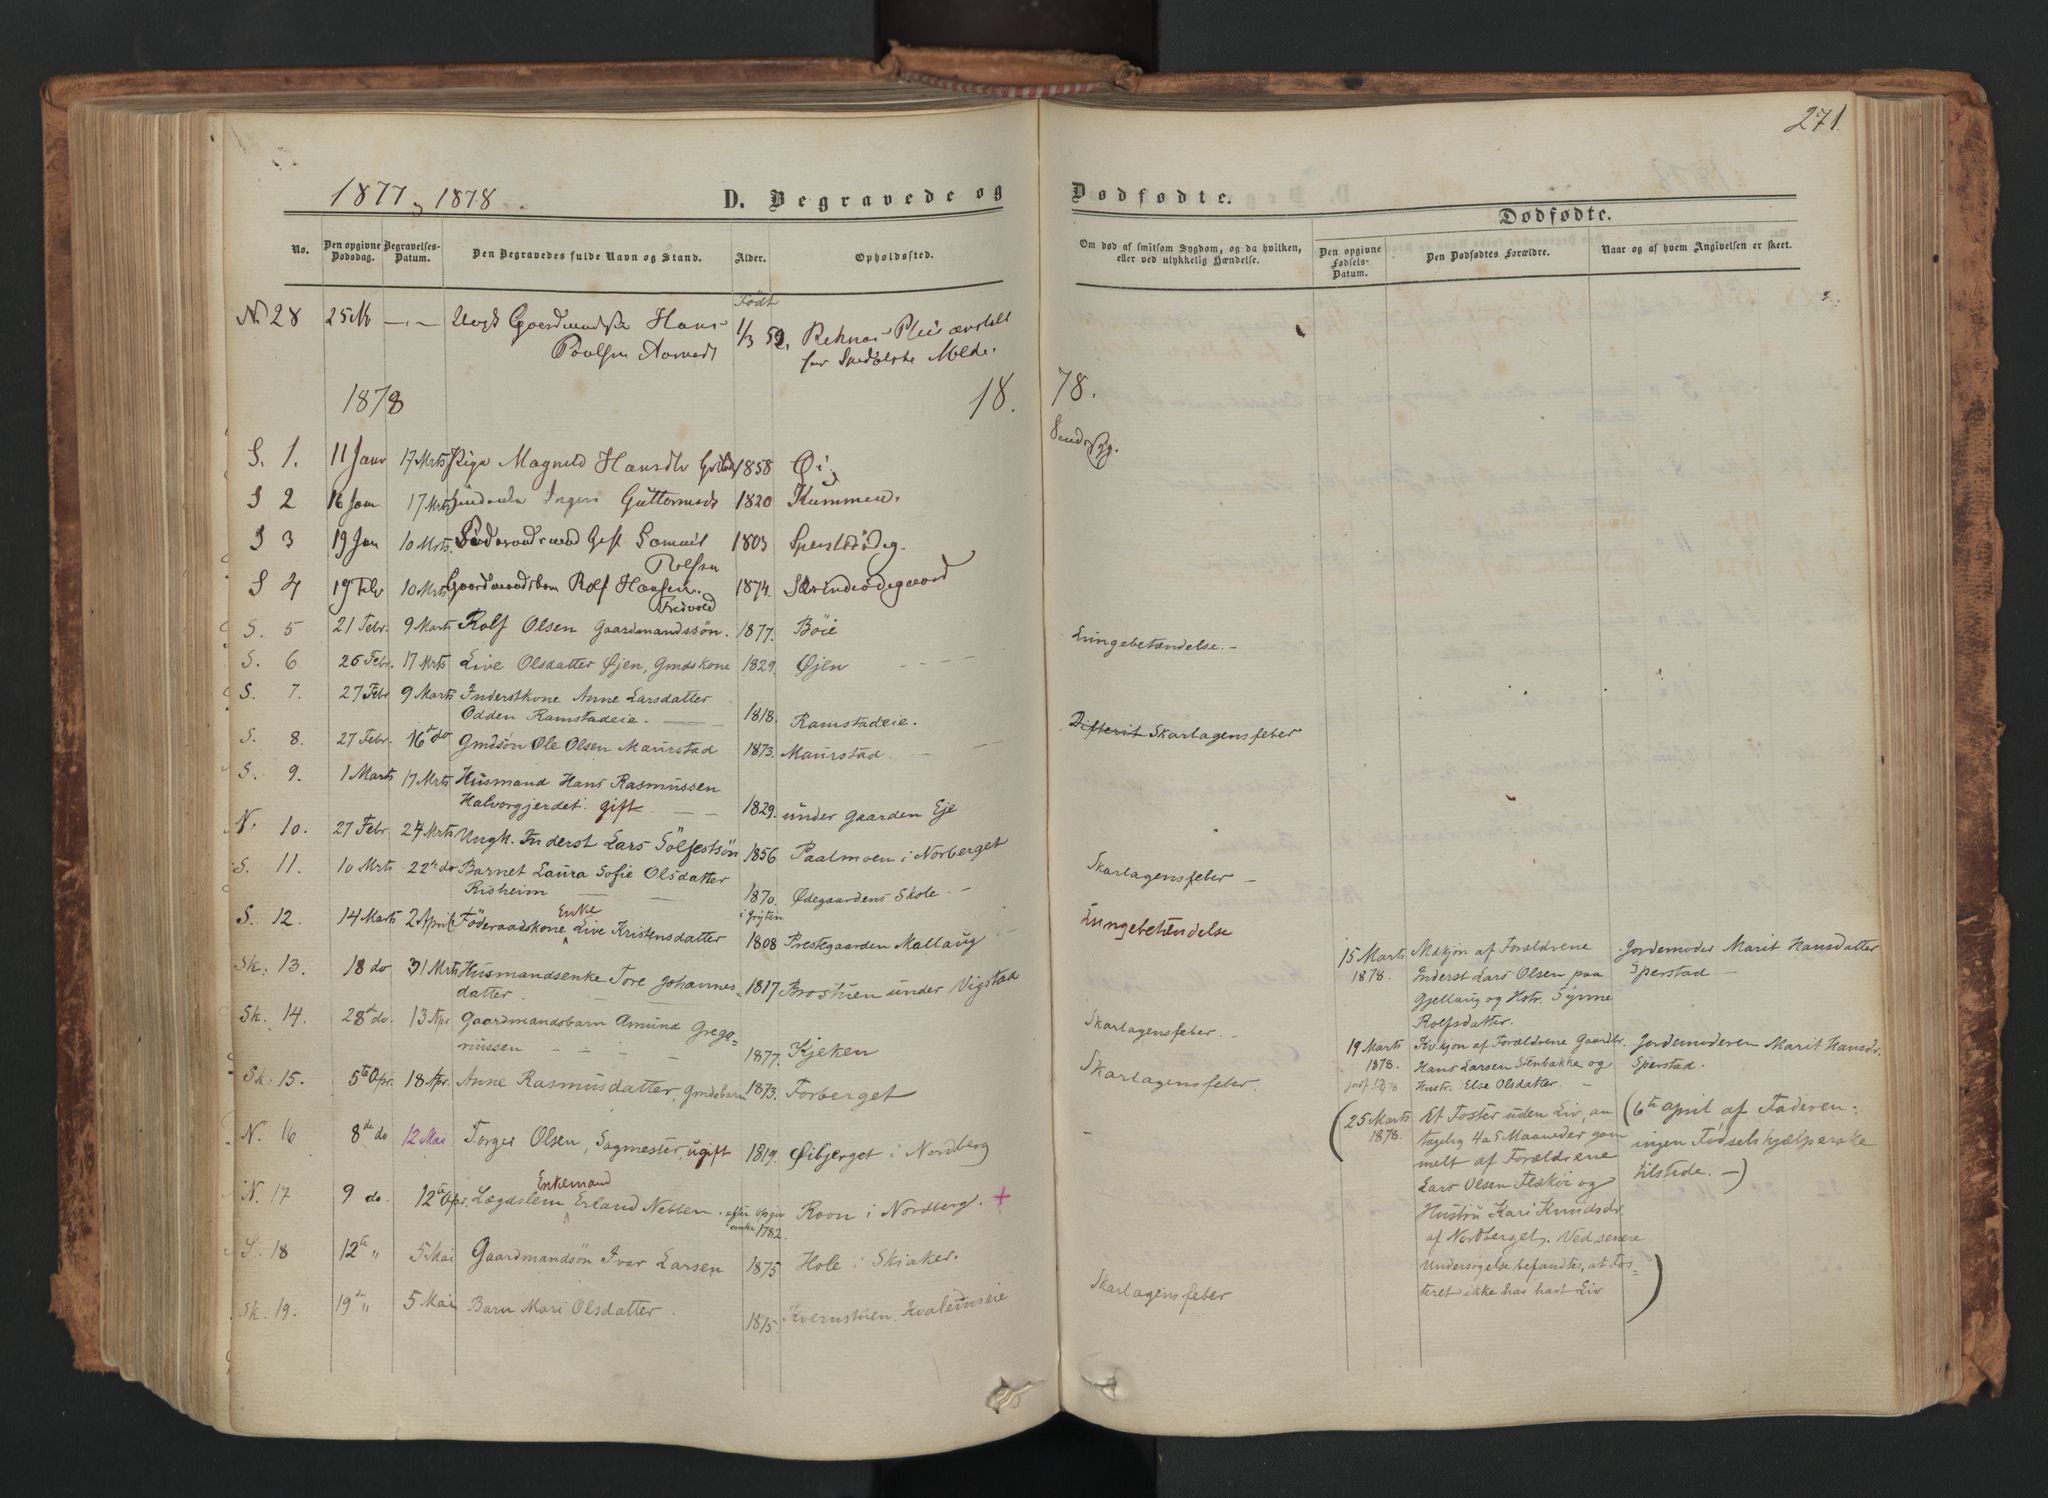 271
1877 og 1878
D. Begravede og Dødfødte.
Dødfødte.
No. Den opgivne Dødsdag. Begravelses-Datum. Den Begravedes fulde Navn og Stand. Alder. Opholdssted. Om død af smitsom Sygdom, og da hvilken, eller ved ulykkelig Hændelse. Den opgivne Fødsels-Datum. Den Dødfødtes Forældre. Naar og af hvem Angivelsen er skeet.
Født
N. 28 25 Hans 1/3 52. Reknes
Molde.
1878 18. 78.
S. 1. 11 Janr 17 Mrts Pige Magnild Hansdtr 1858 Øi
S 2 16 Jan 17 Mrts Guttormsd 1820 Kummen.
S 3 19 Jan 10 Mrts. 1803
Rolfsen
S 4 19 Feb 10 Mrts Rolf Hansen. 1874.
S. 5 21 Febr. 9 Marts Rolf Olsen Gaardmandssøn. 1877. Böie Lungebetændelse. –
S. 6 26 Febr. 17 Mrts Live Olsdatter Øjen, Gmdskone 1829. Øjen
S. 7. 27 Febr 9 Marts Inderstkone Anne Larsdatter
Odden Ramstadeie. 1818. Ramstadeie.
S. 8. 27 Febr. 16de do Gmdsøn Ole Olsen Maurstad 1873. Maurstad. Difterit Skarlagensfeber
S. 9. 1 Marts 17 Mrts Husmand Hans Rasmussen
Halvorgjerdet. gift. 1829. under Gaarden Eje
N. 10. 27 Febr 24 Mrts Ungk. Inderst Lars Sölfestsön 1856 Paalmoen i Norberget
S. 11. 10 Mrts 22de do Barnet Laura Sofie Olsdatter Skarlagensfeber –
Risheim 1870. Ødegaardens Skole. –
S. 12. 14 Marts 2 April Föderaadskone Enke Live Kristensdatter 1808 Prestegaarden Mallaug Lungebetændelse
Sk. 13. 18 do 31 Mrts Husmandsenke Tore Johannes-
datter. 1817 Brostuen under Vigstad
15 Marts 1878. Mdkjøn af Forældrene
Inderst Lars Olsen paa
Gjellaug og Hstr. Synne
Rolfsdatter.
Jordemoder Marit Hansdatter
Sperstad. –
Sk. 14. 28de do. 13 Apr Gaardmandsbarn Amund Grego=
riussen 1877. Kjeken Skarlagensfeber.
19 Marts 1878. Kv.kjøn af Forældrene Gaardbr.
Hans Larsen Stenbakke og
Hustr. Else Olsdatter. –
Jordemoderen Marit Hansdr.
Sperstad.
Sk. 15. 5te Apr. 18 Apr. Anne Rasmusdatter, Gmdsbarn 1873. Forberget Skarlagensfeber.
N. 16 8de do 12 Mai Torger Olsen, Sagmester, ugift 1819. Øibjerget i Nordberg –
(25 Marts 1878. Et Foster uden Liv, an
tagelig 4 a 5 Maaneder gam
melt af Forældrene
Lars Olsen Flækøi og
Hustru Kari Knudsdr.
af Nordberget. Ved senere
Undersøgelse befandtes, at Fos=
teret ikke har havt Liv)
(6te April af Faderen.
ingen Fødselshjælperske
tilstede. –)
N. 17 9 do. 12te Apr. Lægdslem Enkemand Erland Nebben. efter Opgiv 1782. Roon i Nordberg. +
S. 18 12te " 5 Mai Gaardmandsøn Ivar Larsen 1875 Hole i Skiaker.
Sk. 19. 19de " 5 Mai Barn Mari Olsdatter. 1875. Kvernstuen Kvaleinseie Skarlagensfeber